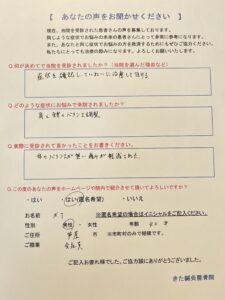 【 あなたの声をお聞かせください 】
現在、当院を受診された患者さんの声を募集しております。
同じような症状でお悩みの未来の患者さんにとって非常に参考になります。
また、あなたと同じ症状でお悩みの方を救済するためにもぜひご協力ください。
私たちにとっても励みになります。よろしくお願いいたします。
Q.何が決めてで当院を受診されましたか?(当院を選んだ理由など)
症状を確認してていねいに治療して頂ける
Q.どのような症状にお悩みで来院されましたか?
肩と体のバランスを調整
Q.実際に受診されて良かったことをお書きください。
体のバランスが整い痛みが軽減された
Q.この度のあなたの声をホームページや院内で紹介させて頂いてよろしいですか?
・はい ・はい(匿名希望) ・いいえ
お名前 ※匿名希望の場合はイニシャルをご記入ください。
性別 男性 ・ 女性 年齢 才
ご住所 市 ※市町村のみで結構です。
ご職業 会社員
ご記入お疲れ様でした。ご協力誠にありがとうございました。
きた鍼灸整骨院